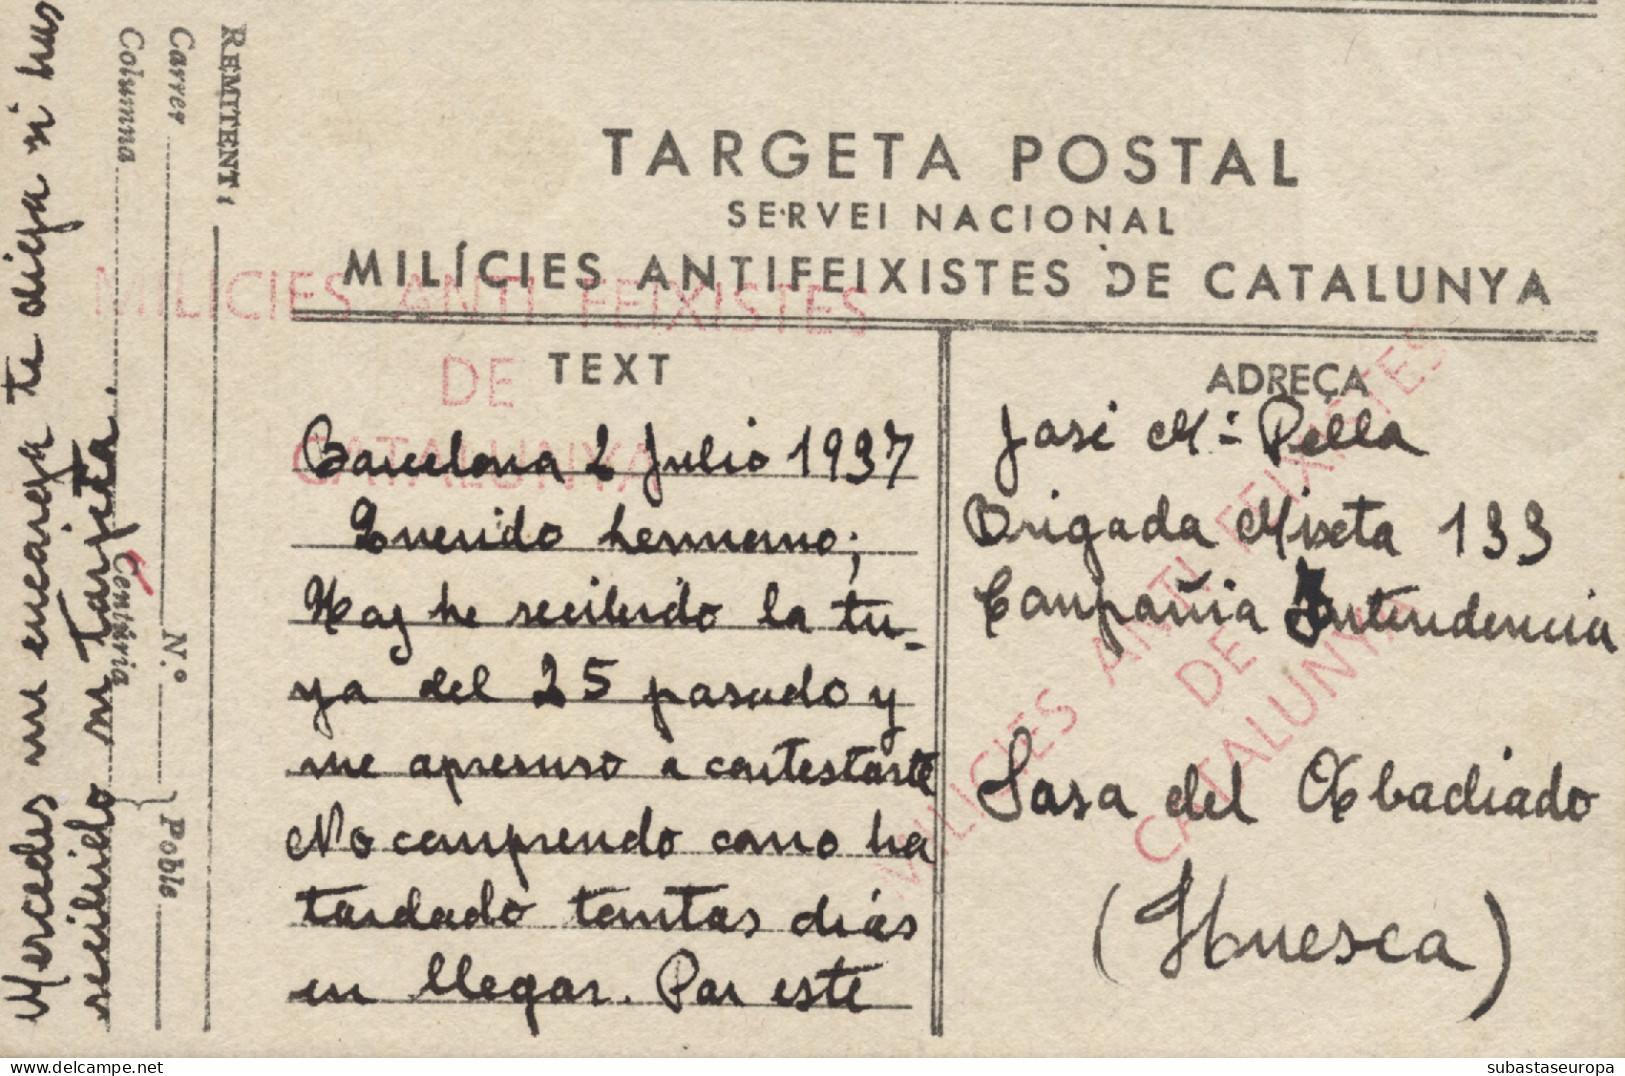 TARGETA POSTAL
SERVEI NACIONAL
MILÍCIES ANTIFEIXISTES DE CATALUNYA
MILÍCIES ANTI FEIXISTES
DE
CATALUNYA
TEXT
Barcelona 2 Julio 1937
Querido hermano;
Hoy he recibido la tu-
ya del 25 pasado y
me apresuro a contestarte
No comprendo como ha
tardado tantas días
en llegar. Por este
ADREÇA
José Mª Pella
Brigada Mixta 133
Compañia Intendencia
Sasa del Abadiado
(Huesca)
MILÍCIES ANTI FEIXISTES
DE
CATALUNYA
REMITENT:
Carrer N.º Poble
Columna Centúria
Mercedes me encarga te diga si has
recibido su tarjeta.
subastaseuropa